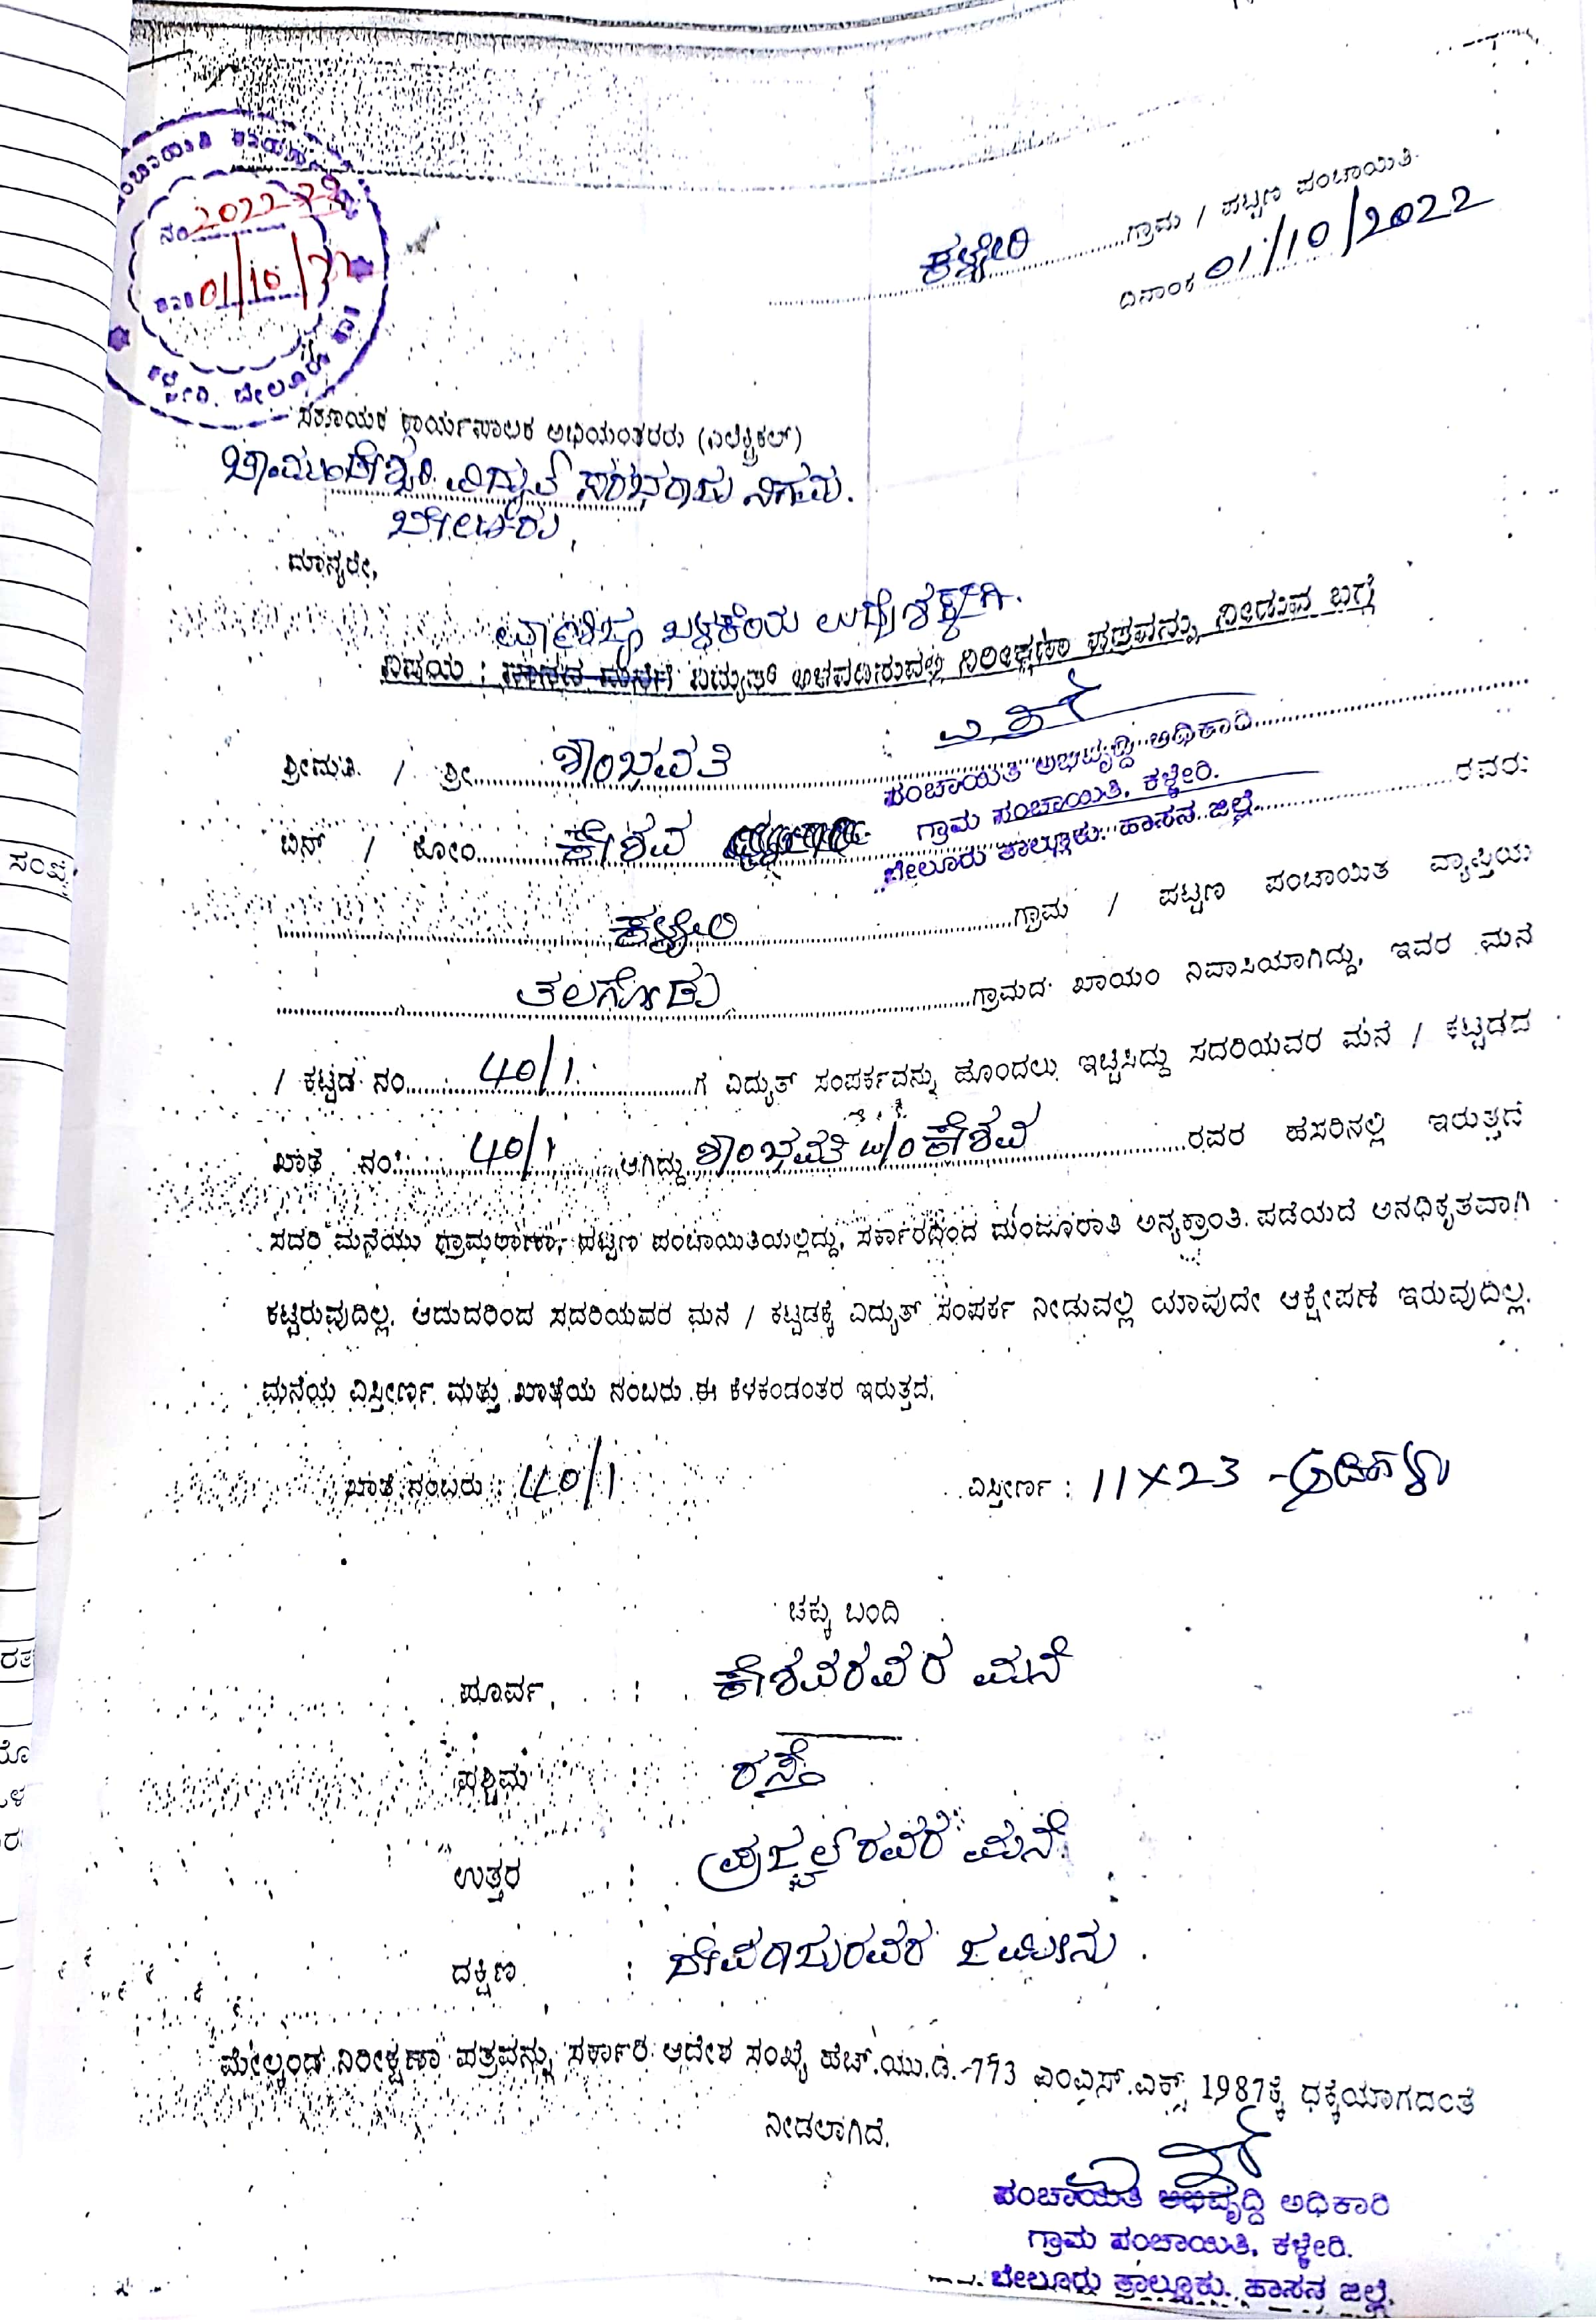 ನಂ 2022-23
01/10/22
ಬೇಲೂರು
ಕಳ್ಳೇರಿ ಗ್ರಾಮ / ಪಟ್ಟಣ ಪಂಚಾಯಿತಿ.
ದಿನಾಂಕ 01/10/2022
ಸಹಾಯಕ ಕಾರ್ಯಪಾಲಕ ಅಭಿಯಂತರರು (ಎಲೆಕ್ಟ್ರಿಕಲ್)
ಚಾಮುಂಡೇಶ್ವರಿ ವಿದ್ಯುತ್ ಸರಬರಾಜು ನಿಗಮ.
ಬೇಲೂರು,
ಮಾನ್ಯರೇ,
ವಾಣಿಜ್ಯ ಬಳಕೆಯ ಉದ್ದೇಶಕ್ಕಾಗಿ.
ವಿಷಯ : ವಿದ್ಯುತ್ ನಿರೀಕ್ಷಣಾ ಪತ್ರವನ್ನು ನೀಡುವ ಬಗ್ಗೆ
ಶ್ರೀಮತಿ / ಶ್ರೀ ಶಾಂಭವತಿ
ಪಂಚಾಯಿತಿ ಅಭಿವೃದ್ಧಿ ಅಧಿಕಾರಿ
ಗ್ರಾಮ ಪಂಚಾಯಿತಿ, ಕಳ್ಳೇರಿ.
ಬೇಲೂರು ತಾಲ್ಲೂಕು. ಹಾಸನ ಜಿಲ್ಲೆ.
ಬಿನ್ / ಕೋಂ ಕೇಶವ ರವರು
ಕಳ್ಳೇರಿ ಗ್ರಾಮ / ಪಟ್ಟಣ ಪಂಚಾಯಿತ ವ್ಯಾಪ್ತಿಯ
ತಲಗೋಡು ಗ್ರಾಮದ ಖಾಯಂ ನಿವಾಸಿಯಾಗಿದ್ದು, ಇವರ ಮನೆ
/ ಕಟ್ಟಡ ನಂ 40/1 ಗೆ ವಿದ್ಯುತ್ ಸಂಪರ್ಕವನ್ನು ಹೊಂದಲು ಇಚ್ಛಿಸಿದ್ದು ಸದರಿಯವರ ಮನೆ / ಕಟ್ಟಡದ
ಖಾತೆ ನಂ 40/1 ಆಗಿದ್ದು ಶಾಂಭವತಿ w/o ಕೇಶವ ರವರ ಹೆಸರಿನಲ್ಲಿ ಇರುತ್ತದೆ
ಸದರಿ ಮನೆಯು ಗ್ರಾಮಠಾಣಾ, ಪಟ್ಟಣ ಪಂಚಾಯಿತಿಯಲ್ಲಿದ್ದು, ಸರ್ಕಾರದಿಂದ ಮಂಜೂರಾತಿ ಅನ್ಯಕ್ರಾಂತಿ ಪಡೆಯದೆ ಅನಧಿಕೃತವಾಗಿ
ಕಟ್ಟಿರುವುದಿಲ್ಲ. ಆದುದರಿಂದ ಸದರಿಯವರ ಮನೆ / ಕಟ್ಟಡಕ್ಕೆ ವಿದ್ಯುತ್ ಸಂಪರ್ಕ ನೀಡುವಲ್ಲಿ ಯಾವುದೇ ಆಕ್ಷೇಪಣೆ ಇರುವುದಿಲ್ಲ.
ಮನೆಯ ವಿಸ್ತೀರ್ಣ ಮತ್ತು ಖಾತೆಯ ನಂಬರು ಈ ಕೆಳಕಂಡಂತರ ಇರುತ್ತದೆ.
ಖಾತೆ ನಂಬರು : 40/1 ವಿಸ್ತೀರ್ಣ : 11X23 - ಅಡಿಗಳು
ಚಕ್ಕು ಬಂದಿ
ಪೂರ್ವ : ಕೇಶವರವರ ಮನೆ
ಪಶ್ಚಿಮ : ರಸ್ತೆ
ಉತ್ತರ : ಪ್ರಜ್ವಲ್ ರವರ ಮನೆ
ದಕ್ಷಿಣ : ದೇವರಾಜುರವರ ಜಮೀನು.
ಮೇಲ್ಕಂಡ ನಿರೀಕ್ಷಣಾ ಪತ್ರವನ್ನು ಸರ್ಕಾರಿ ಆದೇಶ ಸಂಖ್ಯೆ ಹೆಚ್.ಯು.ಡಿ.-773 ಎಂಎಸ್.ಎಕ್ಸ್ 1987ಕ್ಕೆ ಧಕ್ಕೆಯಾಗದಂತೆ
ನೀಡಲಾಗಿದೆ.
ಪಂಚಾಯಿತಿ ಅಭಿವೃದ್ಧಿ ಅಧಿಕಾರಿ
ಗ್ರಾಮ ಪಂಚಾಯಿತಿ, ಕಳ್ಳೇರಿ.
ಬೇಲೂರು ತಾಲ್ಲೂಕು. ಹಾಸನ ಜಿಲ್ಲೆ.